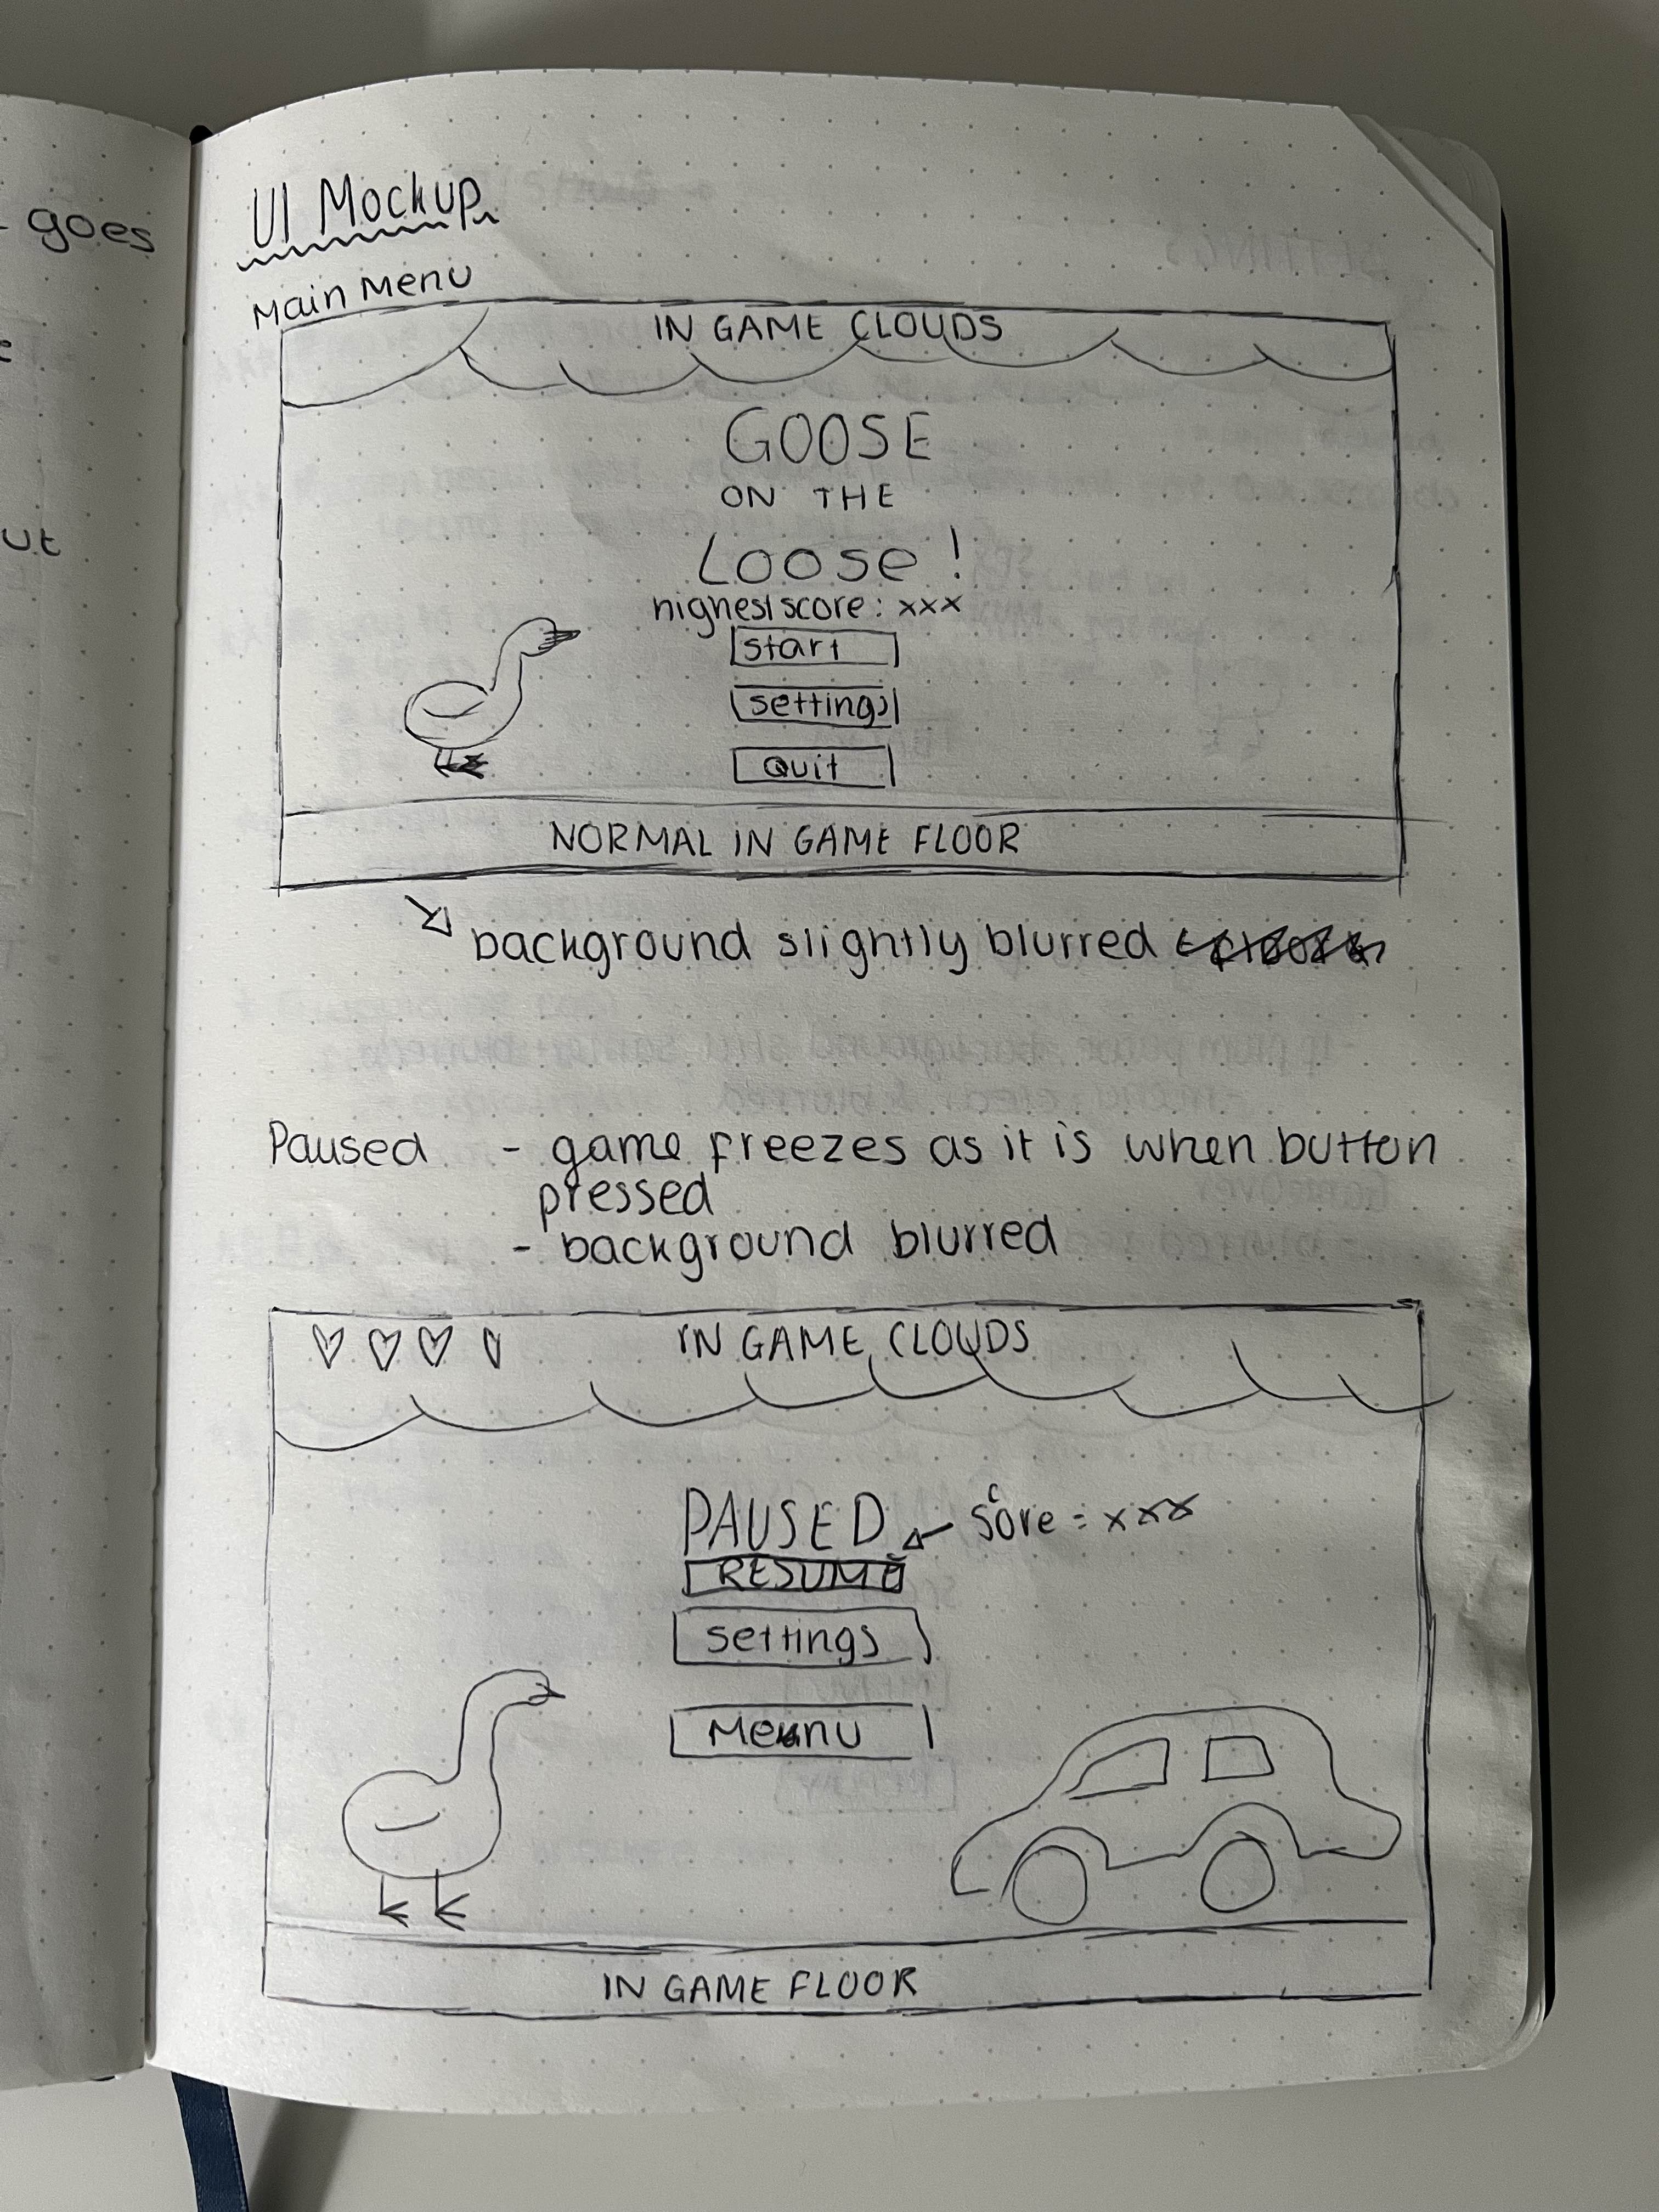 goes
ut
UI Mockup
Main Menu
IN GAME CLOUDS
GOOSE
ON THE
Loose!
highest score: xxx
start
settings
Quit
NORMAL IN GAME FLOOR
background slightly blurred
Paused - game freezes as it is when button
pressed
- background blurred
IN GAME CLOUDS
PAUSED
score = xxx
RESUME
settings
Menu
IN GAME FLOOR